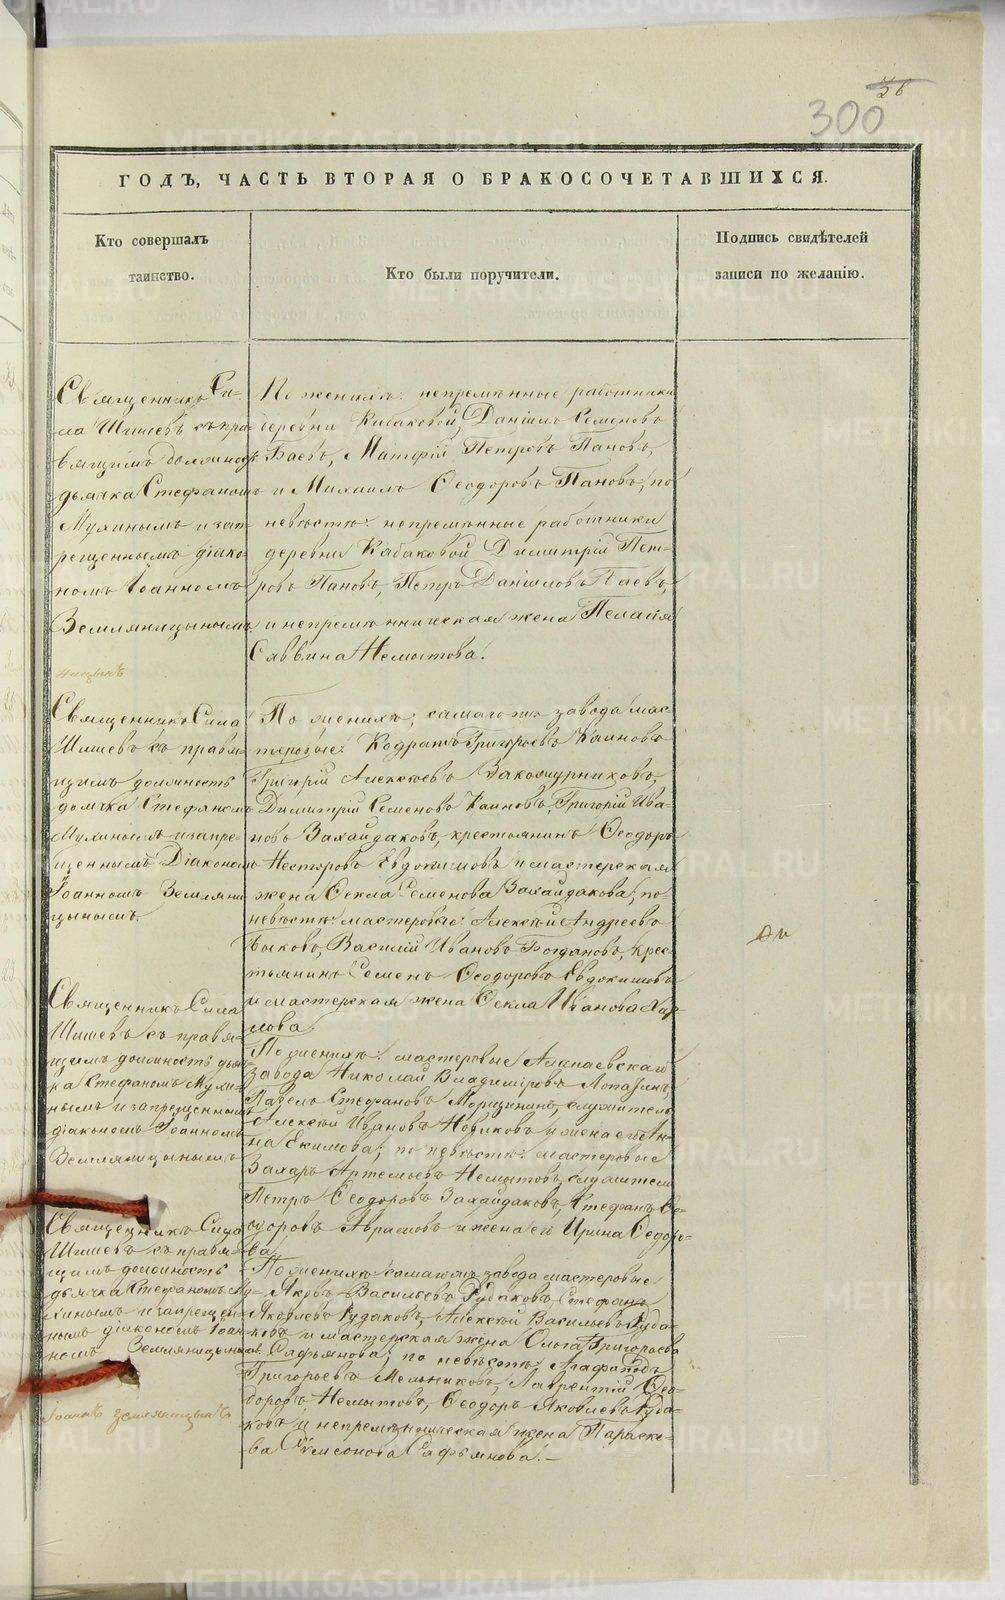 56
300
ГОДЪ, ЧАСТЬ ВТОРАЯ О БРАКОСОЧЕТАВШИХСЯ.
Кто совершалъ
таинство.
Кто были поручители.
Подпись свидѣтелей
записи по желанію.
Священникъ Си-
ла Шишевъ съ пра-
вящимъ должность
дьячка Стефаномъ
Мухинымъ и зап-
рещеннымъ діако-
номъ Іоанномъ
Земляницынымъ
По женихѣ: непремѣнные работники
деревни Кабаковой, Даніилъ Семеновъ
Баевъ, Матфій Петровъ Пановъ,
и Михаилъ Ѳеодоровъ Пановъ, по
невѣстѣ: непремѣнные работники
деревни Кабаковой Димитрій Пет-
ровъ Пановъ, Петръ Даніиловъ Баевъ,
и непремѣнническая жена Пелагія
Саввина Немытова.
Священникъ Сила
Шишевъ съ правя-
щимъ должность
дьячка Стефаномъ
Мухинымъ и запре-
щеннымъ Діакономъ
Іоанномъ Земляни-
цынымъ.
По женихѣ; самаго жъ завода мас-
теровые: Кодратъ Григорьевъ Каиновъ
Григорій Алексѣевъ Закожурниковъ,
Димитрій Семеновъ Каиновъ, Григорій Ива-
новъ Захайдаковъ, крестьянинъ Ѳеодоръ
Несторовъ Евдокимовъ и мастерская
жена Ѳекла Семенова Захайдакова; по
невѣстѣ: мастеровые: Алексѣй Андреевъ
Быковъ, Василій Ивановъ Богдановъ, крес-
тьянинъ Семенъ Ѳеодоровъ Евдокимовъ
и мастерская жена Ѳекла Иванова
Священникъ Сила
Шишевъ съ правя-
щимъ должность дьяч-
ка Стефаномъ Мухи-
нымъ и запрещеннымъ
діакономъ Іоанномъ
Земляницынымъ
По женихѣ: мастеровые Алапаевскаго
завода Николай Владиміровъ
Павелъ Стефановъ служитель
Алексѣй Ивановъ Новиковъ и жена его Ан-
на Екимова; по невѣстѣ: мастеровые
Захаръ Артемьевъ Немытовъ, служители
Петръ Ѳеодоровъ Захайдаковъ, Стефанъ Ѳе-
одоровъ Абрамовъ и жена его Ирина Ѳедоро-
ва.
Священникъ Сила
Шишевъ съ правя-
щимъ должность
дьячка Стефаномъ Му-
хинымъ и запрещен-
нымъ діакономъ Іоан-
номъ Земляницынымъ
Іоаннъ Земляницынъ
По женихѣ самаго жъ завода мастеровые
Яковъ Васильевъ Рудаковъ, Стефанъ
Яковлевъ Рудаковъ, Алексѣй Васильевъ Руда-
ковъ и мастерская жена Ольга Григорьева
Сафьянова; по невѣстѣ: Агафонъ
Григорьевъ Мельниковъ, Лаврентій Ѳео-
доровъ Немытовъ, Ѳеодоръ Яковлевъ Руда-
ковъ и непремѣнническая жена Параске-
ва Сумеонова Сафьянова.
METRIKI.GASO-URAL.RU